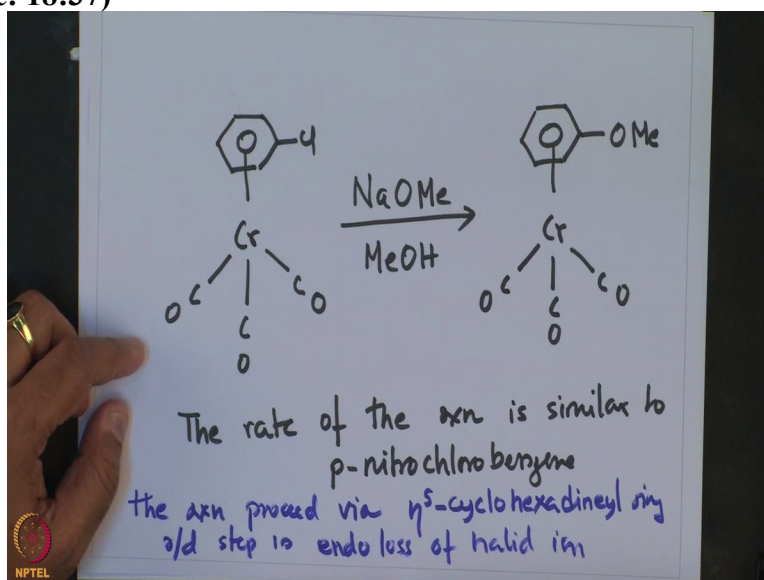 18:37)
Cl
OMe
NaOMe
MeOH
Cr
Cr
C O
C O
C O
C O
C O
C O
The rate of the rxn is similar to
p-nitrochlorobenzene
the rxn proceed via η⁵-cyclohexadineyl ring
r/d step is endo loss of halid ion
NPTEL